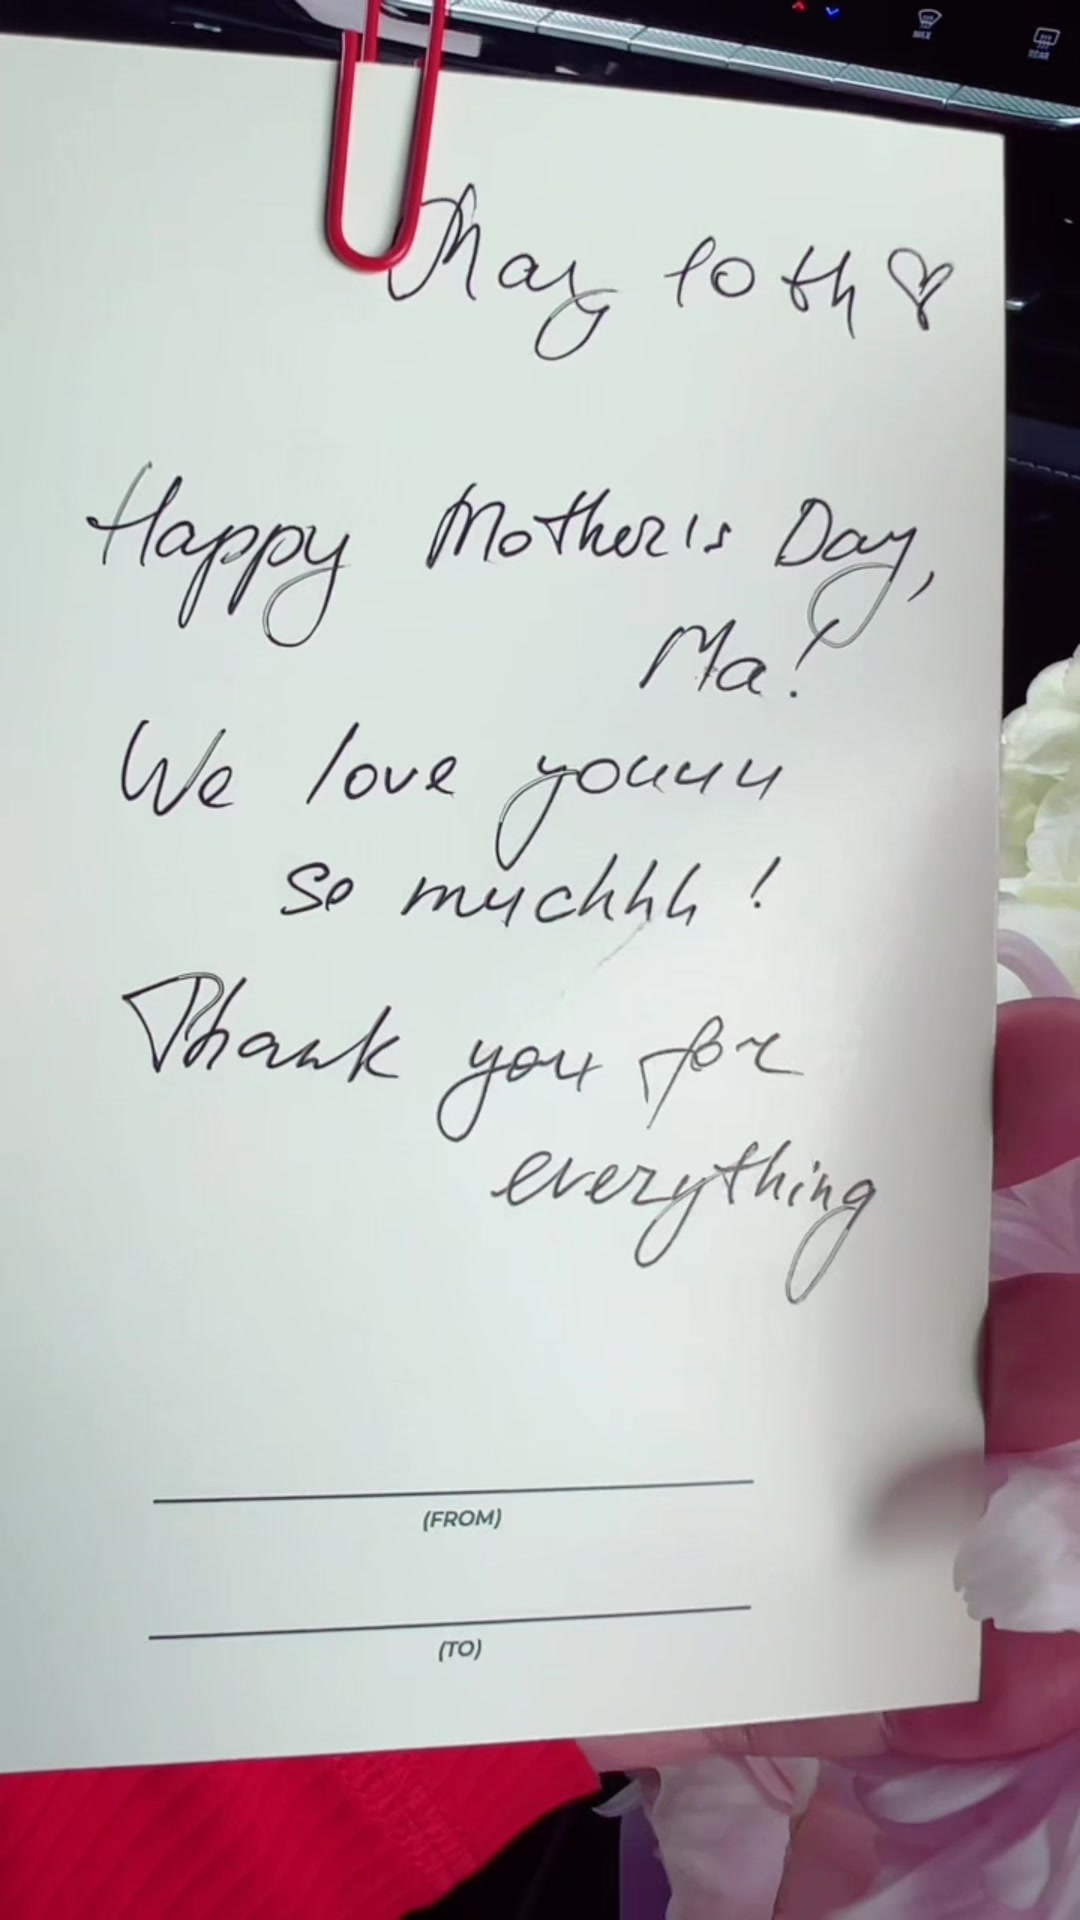 MAX
REAR
May 10th ♡
Happy Mother's Day,
Ma!
We love youuu
so muchhh!
Thank you for
everything
(FROM)
(TO)